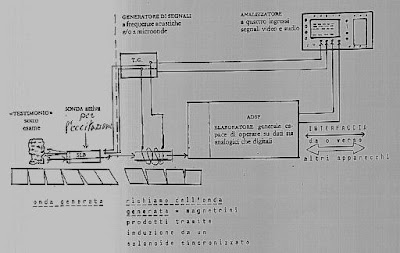 GENERATORE DI SEGNALI
a frequenze acustiche
e/o a microonde
ANALIZZATORE
a quattro ingressi
segnali video e audio
T.G.
«TESTIMONIO»
sotto
esame
SONDA attiva
per
SLB
ADSP
ELABORATORE generale ca-
pace di operare su dati sia
analogici che digitali
INTERFACCIA
da o verso
altri apparecchi
onda generata
richiamo dell'onda
generata e magnetrini
prodotti tramite
induzione da un
solenoide sincronizzato